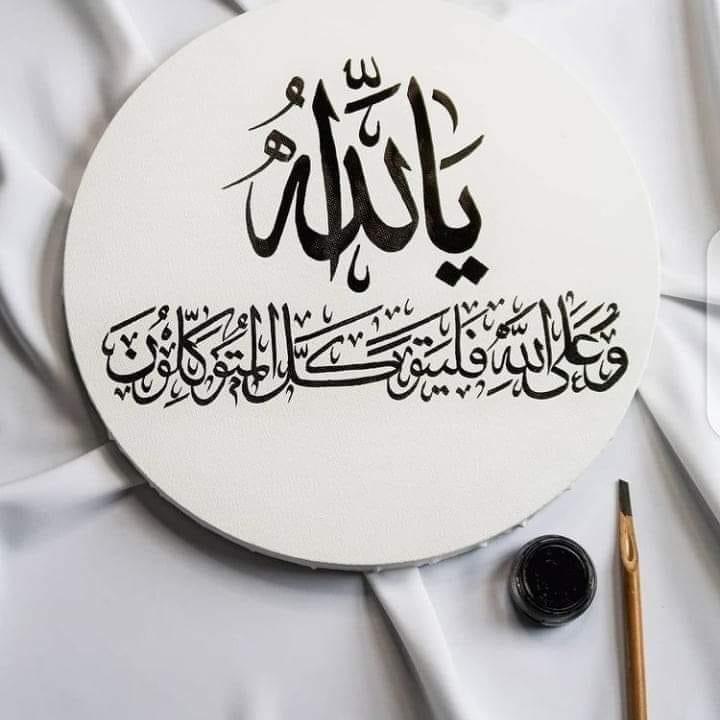 يا اللّٰهُ
وَعَلَى اللَّهِ فَلْيَتَوَكَّلِ الْمُتَوَكِّلُونَ